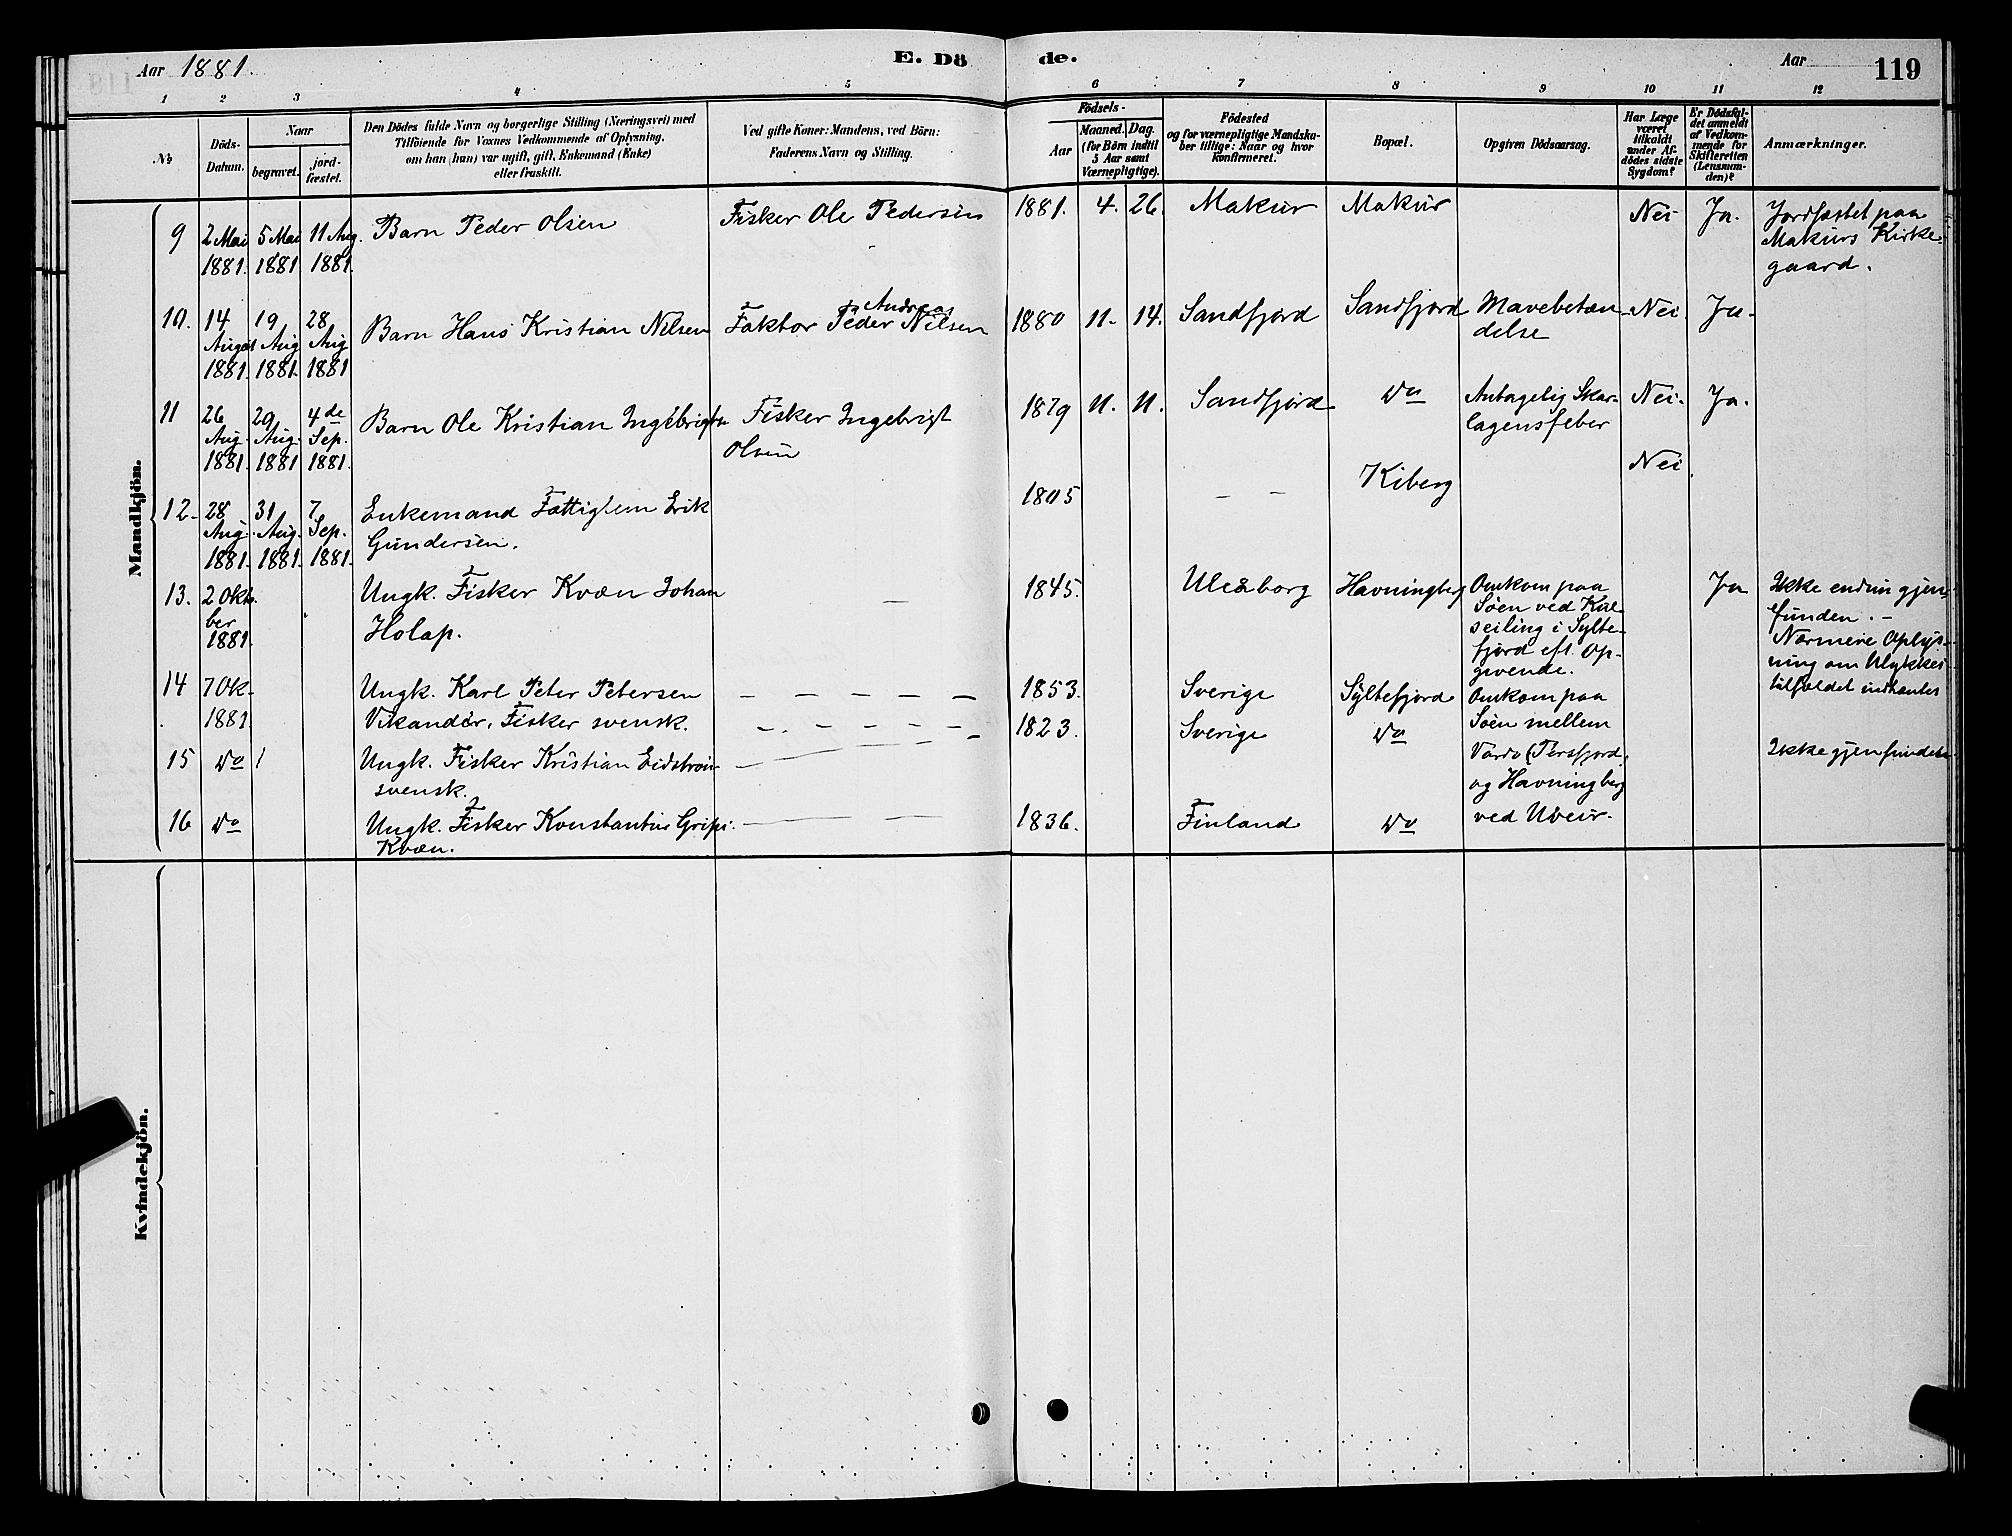 Aar 1881.
E. Dö
de.
Aar
119
1 2 3 4 5 6 7 8 9 10 11 12
No
Döds-
Datum.
Naar
begravet.
jord-
fæstet.
Den Dödes fulde Navn og borgerlige Stilling (Næringsvei) med
Tilföiende for Voxnes Vedkommende af Oplysning,
om han (hun) var ugift, gift, Enkemand (Enke)
eller fraskilt.
Ved gifte Koner: Mandens, ved Börn:
Faderens Navn og Stilling.
Födsels-
Aar
Maaned.
Dag.
(for Börn indtil
5 Aar samt
Værnepligtige).
Födested
og for værnepligtige Mandska-
ber tillige: Naar og hvor
Konfirmeret.
Bopæl.
Opgiven Dödsaarsag.
Har Læge
været
tilkaldt
under Af-
dödes sidste
Sygdom?
Er Dödsfal-
det anmeldt
af Vedkom-
mende for
Skifteretten
(Lensman-
den)?
Anmærkninger.
Mandkjön.
9
2 Mai
1881.
5 Mai
1881
11 Aug.
1881.
Barn Peder Olsen
Fisker Ole Pedersen
1881. 4. 26.
Makur
Makur
Nei
Ja.
Jordfæstet paa
Makurs Kirke-
gaard.
10.
14
August
1881.
19
Aug
1881.
28
Aug
1881
Barn Hans Kristian Nilsen
Andreas
Faktor Peder Nilsen
1880 11. 14.
Sandfjord
Sandfjord
Mavebetæn-
delse
Nei
Ja.
11
26
Aug.
1881.
29
Aug.
1881
4de
Sep.
1881.
Barn Ole Kristian Ingebrigtsn
Fisker Ingebrigt
Olsen
1879 11. 11.
Sandfjord
do
Antagelig Skar-
lagensfeber
Nei.
Ja.
12.
28
Aug.
1881.
31
Aug.
1881.
7
Sep.
1881.
Enkemand Fattiglem Erik
Gundersen.
1805
– –
Kiberg
Nei
13.
2 Okto
ber
1881.
Ungk. Fisker Kvæn Johan
Holap.
—
1845.
Uleåborg
Havningberg
Omkom paa
Søen ved Kul
seiling i Sylte-
fjord eft. Op-
givende.
Ja
Ikke endnu gjen-
funden. –
Nærmere Oplys-
ning om Ulykkes-
tilfældet indhentes
14
7 Ok-
1881.
Ungk. Karl Peter Petersen
Vikander, Fisker svensk.
– – – – –
1853.
Sverige
Syltefjord
Omkom paa
Søen mellem
Vardø (Persfjord,
og Havningberg
ved Uveir.
15
do
Ungk. Fisker Kristian Eidstrøm
svensk.
1823.
Sverige
do
Ikke gjenfundet
16
do
Ungk. Fisker Konstantin Gripi.
Kvæn.
1836.
Finland
do
Kvindekjön.